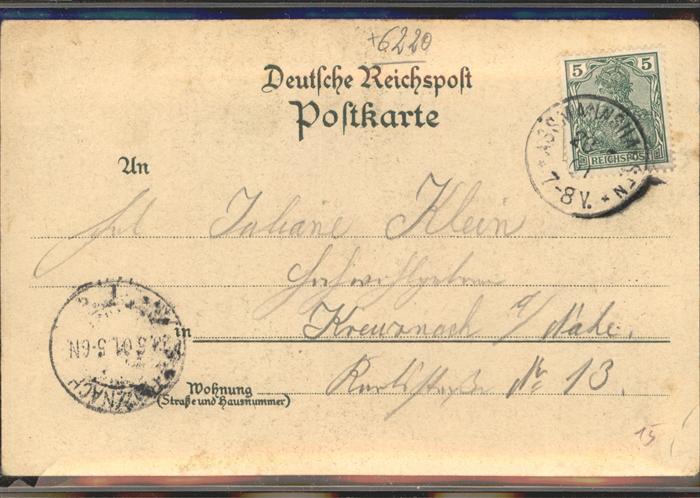 +6220
Deutsche Reichspost
Postkarte
5 5
REICHSPOST
ASSMANNSHAUSEN
7-8V.
An
Frl. Juliane Klein
in Kreuznach a/Nahe.
Wohnung
(Straße und Hausnummer)
No 13.
KREUZNACH
5-6N
15